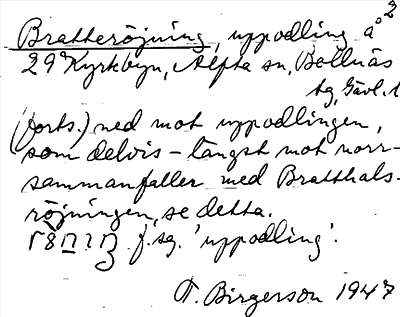 2
Bratteröjning, uppodling å
29 Kyrkbyn, Alfta sn, Bollnäs
tg, Gävl. l
(forts.) ned mot uppodlingen,
som delvis – längst mot norr –
sammanfaller med Bratthals-
röjningen, se detta.
f. sg. 'uppodling'.
T. Birgerson 1947